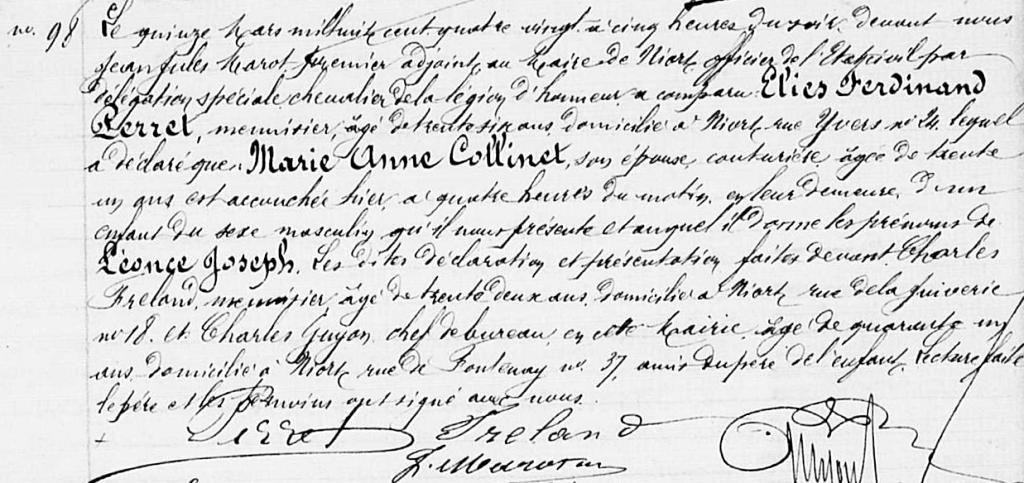 no. 98 Le quinze Mars mil huit cent quatre vingt, à cinq heures du soir, devant nous
Jean Jules Marot, premier adjoint au Maire de Niort, officier de l'Etat civil par
délégation spéciale chevalier de la légion d'honneur, a comparu Elies Ferdinand
Perret, menuisier, âgé de trente six ans, domicilié à Niort, rue Yvers no 24, lequel
a déclaré que Marie Anne Collinet, son épouse, couturière, âgée de trente
un ans est accouchée hier, à quatre heures du matin, en leur demeure, d'un
enfant du sexe masculin, qu'il nous présente et auquel il donne les prénoms de
Léonce Joseph. Les dites déclaration et présentation faites devant Charles
Freland, menuisier, âgé de trente deux ans, domicilié à Niort, rue de la Juiverie
no 18. et Charles Guyon, chef de bureau en cette Mairie, âgé de quarante un
ans, domicilié à Niort, rue de Fontenay no. 37, amis du père de l'enfant. Lecture faite
le père et les témoins ont signé avec nous.
+ Perret Freland Guyon
J. Marot